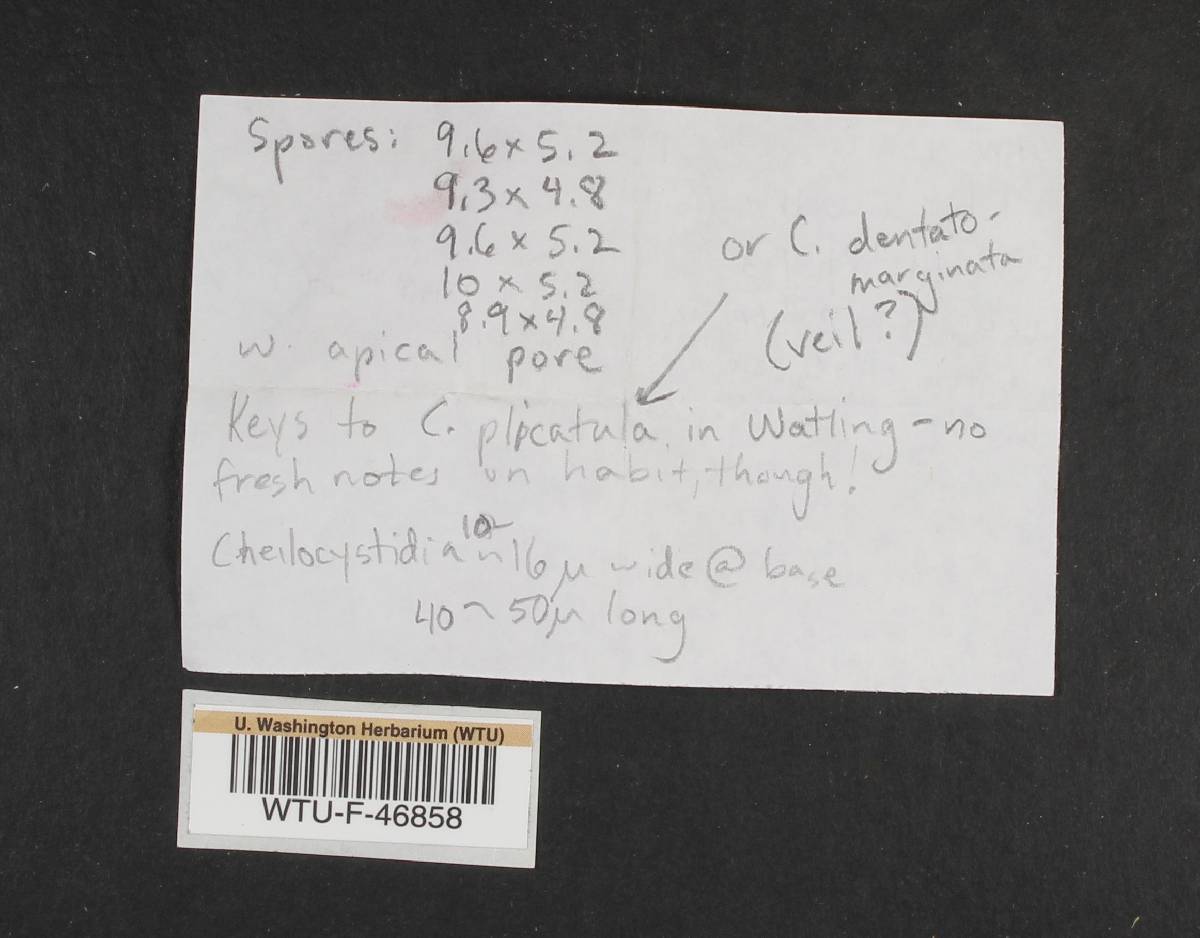 Spores: 9.6 x 5.2
9.3 x 4.8
9.6 x 5.2
10 x 5.2
8.9 x 4.8
w. apical pore
or C. dentato-
marginata
(veil?)
Keys to C. plicatula in Watling - no
fresh notes on habit, though!
Cheilocystidia 10~16 µ wide @ base
40~50µ long
U. Washington Herbarium (WTU)
WTU-F-46858